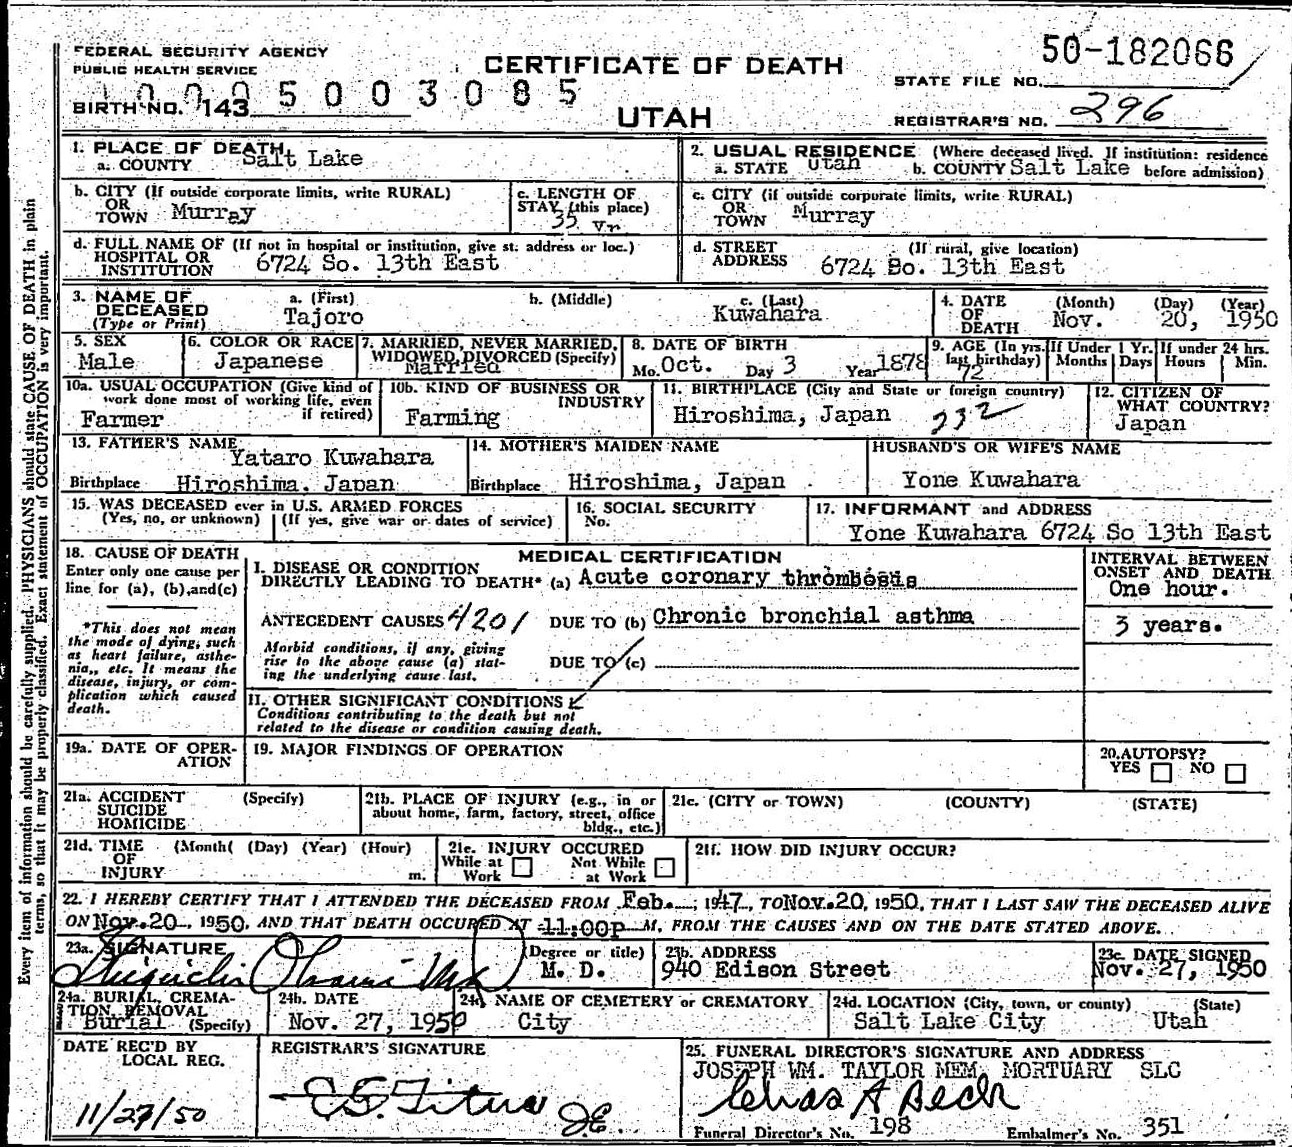 FEDERAL SECURITY AGENCY
PUBLIC HEALTH SERVICE
BIRTH NO. 143
5003085
CERTIFICATE OF DEATH
UTAH
50-182066
STATE FILE NO.
REGISTRAR'S NO. 296
Every item of information should be carefully supplied. PHYSICIANS should state CAUSE OF DEATH in plain
terms, so that it may be properly classified. Exact statement of OCCUPATION is very important.
1. PLACE OF DEATH
a. COUNTY Salt Lake
2. USUAL RESIDENCE (Where deceased lived. If institution: residence
a. STATE Utah b. COUNTY Salt Lake before admission)
b. CITY (If outside corporate limits, write RURAL)
OR
TOWN Murray
c. LENGTH OF
STAY (this place)
35 Yr
c. CITY (if outside corporate limits, write RURAL)
OR
TOWN Murray
d. FULL NAME OF (If not in hospital or institution, give st. address or loc.)
HOSPITAL OR
INSTITUTION 6724 So. 13th East
d. STREET (If rural, give location)
ADDRESS 6724 So. 13th East
3. NAME OF DECEASED
(Type or Print)
a. (First) b. (Middle) c. (Last)
Tajoro Kuwahara
4. DATE OF DEATH (Month) (Day) (Year)
Nov. 20, 1950
5. SEX
Male
6. COLOR OR RACE
Japanese
7. MARRIED, NEVER MARRIED,
WIDOWED, DIVORCED (Specify)
Married
8. DATE OF BIRTH
Mo. Oct. Day 3 Year 1878
9. AGE (In yrs. last birthday) 72
If Under 1 Yr. Months Days
If under 24 hrs. Hours Min.
10a. USUAL OCCUPATION (Give kind of
work done most of working life, even
if retired)
Farmer
10b. KIND OF BUSINESS OR
INDUSTRY
Farming
11. BIRTHPLACE (City and State or foreign country)
Hiroshima, Japan 232
12. CITIZEN OF
WHAT COUNTRY?
Japan
13. FATHER'S NAME
Yataro Kuwahara
Birthplace Hiroshima. Japan
14. MOTHER'S MAIDEN NAME
Birthplace Hiroshima, Japan
HUSBAND'S OR WIFE'S NAME
Yone Kuwahara
15. WAS DECEASED ever in U.S. ARMED FORCES
(Yes, no, or unknown) (If yes, give war or dates of service)
16. SOCIAL SECURITY
No.
17. INFORMANT and ADDRESS
Yone Kuwahara 6724 So 13th East
18. CAUSE OF DEATH
Enter only one cause per
line for (a), (b), and (c)
*This does not mean
the mode of dying, such
as heart failure, asthe-
nia,, etc. It means the
disease, injury, or com-
plication which caused
death.
MEDICAL CERTIFICATION
I. DISEASE OR CONDITION
DIRECTLY LEADING TO DEATH* (a) Acute coronary thrombosis
ANTECEDENT CAUSES 4201 DUE TO (b) Chronic bronchial asthma
Morbid conditions, if any, giving
rise to the above cause (a) stat-
ing the underlying cause last.
DUE TO (c)
II. OTHER SIGNIFICANT CONDITIONS
Conditions contributing to the death but not
related to the disease or condition causing death.
INTERVAL BETWEEN
ONSET AND DEATH
One hour.
3 years.
19a. DATE OF OPER-
ATION
19. MAJOR FINDINGS OF OPERATION
20. AUTOPSY?
YES NO
21a. ACCIDENT (Specify)
SUICIDE
HOMICIDE
21b. PLACE OF INJURY (e.g., in or
about home, farm, factory, street, office
bldg., etc.)
21c. (CITY or TOWN) (COUNTY) (STATE)
21d. TIME (Month( (Day) (Year) (Hour)
OF
INJURY m.
21e. INJURY OCCURED
While at Work Not While at Work
21f. HOW DID INJURY OCCUR?
22. I HEREBY CERTIFY THAT I ATTENDED THE DECEASED FROM Feb. , 1947, TO Nov. 20, 1950, THAT I LAST SAW THE DECEASED ALIVE
ON Nov. 20, 1950, AND THAT DEATH OCCURED AT 11:00P M. FROM THE CAUSES AND ON THE DATE STATED ABOVE.
23a. SIGNATURE (Degree or title)
M. D.
23b. ADDRESS
940 Edison Street
23c. DATE SIGNED
Nov. 27, 1950
24a. BURIAL, CREMA-
TION, REMOVAL
Burial (Specify)
24b. DATE
Nov. 27, 1950
24c. NAME OF CEMETERY or CREMATORY
City
24d. LOCATION (City, town, or county) (State)
Salt Lake City Utah
DATE REC'D BY
LOCAL REG.
11/27/50
REGISTRAR'S SIGNATURE
25. FUNERAL DIRECTOR'S SIGNATURE AND ADDRESS
JOSEPH WM. TAYLOR MEM. MORTUARY SLC
Chas A Beck
Funeral Director's No. 198 Embalmer's No. 351